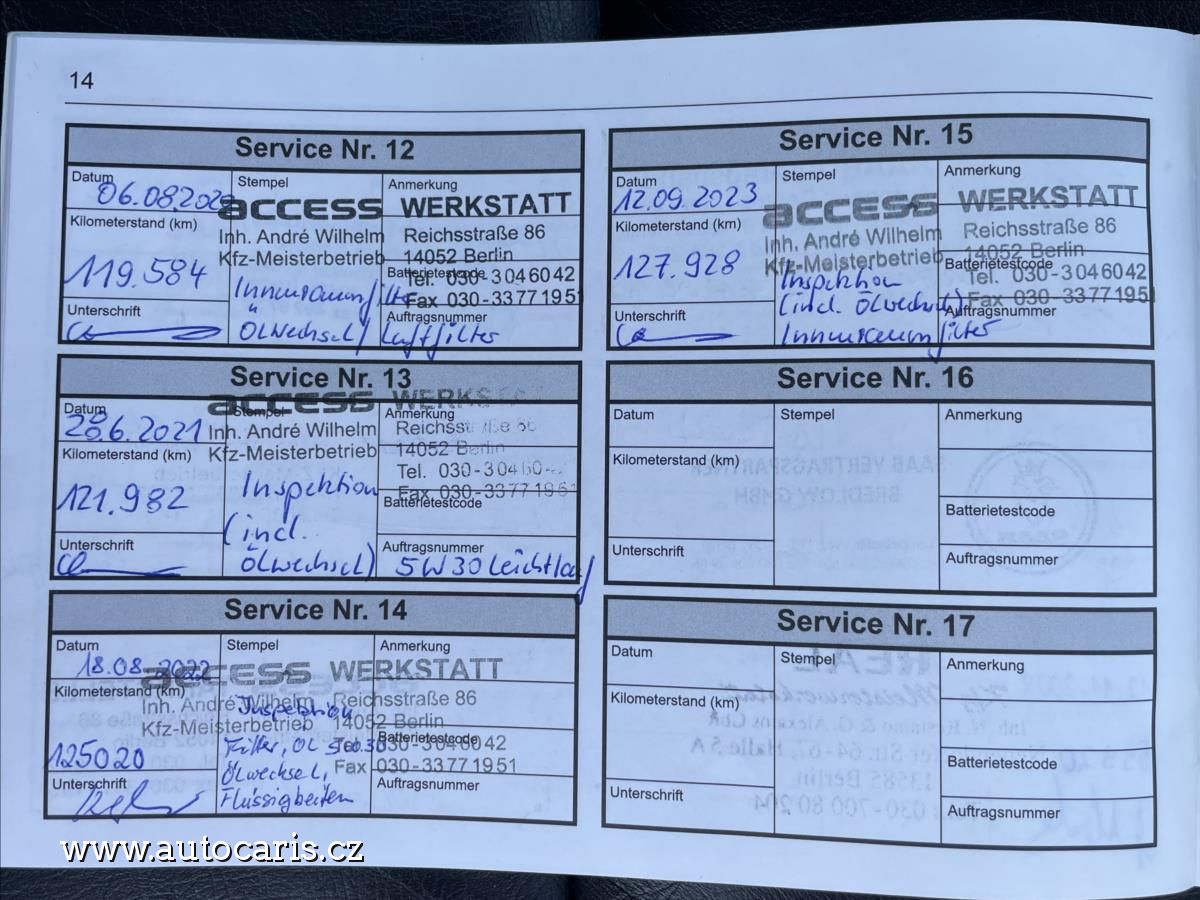 14
Service Nr. 12
Datum
06.08.202
Stempel
Anmerkung
access WERKSTATT
Kilometerstand (km)
Inh. André Wilhelm Reichsstraße 86
Kfz-Meisterbetrieb 14052 Berlin
119.584
Batterietestcode
Tel. 030-3046042
Innenraumfilter
Fax 030-33771951
Unterschrift
Auftragsnummer
Ölwechsel / Luftfilter
Service Nr. 13
Datum
28.6.2021
Stempel
Anmerkung
access WERKS
Kilometerstand (km)
Inh. André Wilhelm
Kfz-Meisterbetrieb 14052 Berlin
Tel. 030-30460
121.982
Inspektion
Fax 030-33771951
Batterietestcode
(incl.
Unterschrift
Ölwechsel)
Auftragsnummer
5W30 Leichtlauf
Service Nr. 14
Datum
18.08.2022
Stempel
Anmerkung
access WERKSTATT
Kilometerstand (km)
Inh. André Wilhelm Reichsstraße 86
Inspektion
Kfz-Meisterbetrieb 14052 Berlin
125020
Filter, ÖL 5w30
Batterietestcode
Tel. 030-3046042
Fax 030-33771951
Ölwechsel,
Unterschrift
Flüssigkeiten
Auftragsnummer
Service Nr. 15
Datum
12.09.2023
Stempel
Anmerkung
access WERKSTATT
Kilometerstand (km)
Inh. André Wilhelm Reichsstraße 86
Kfz-Meisterbetrieb 14052 Berlin
127.928
Batterietestcode
Tel. 030-3046042
Inspektion
Fax 030-33771951
(incl. Ölwechsel)
Unterschrift
Auftragsnummer
Innenraumfilter
Service Nr. 16
Datum
Stempel
Anmerkung
Kilometerstand (km)
Batterietestcode
Unterschrift
Auftragsnummer
Service Nr. 17
Datum
Stempel
Anmerkung
Kilometerstand (km)
Batterietestcode
Unterschrift
Auftragsnummer
www.autocaris.cz